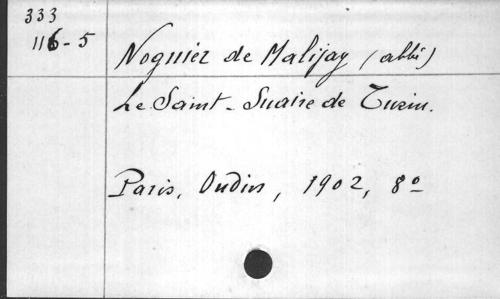 333
116-5
Noguier de Malijay (abbé)
Le Saint-Suaire de Turin.
Paris, Oudin, 1902, 8º